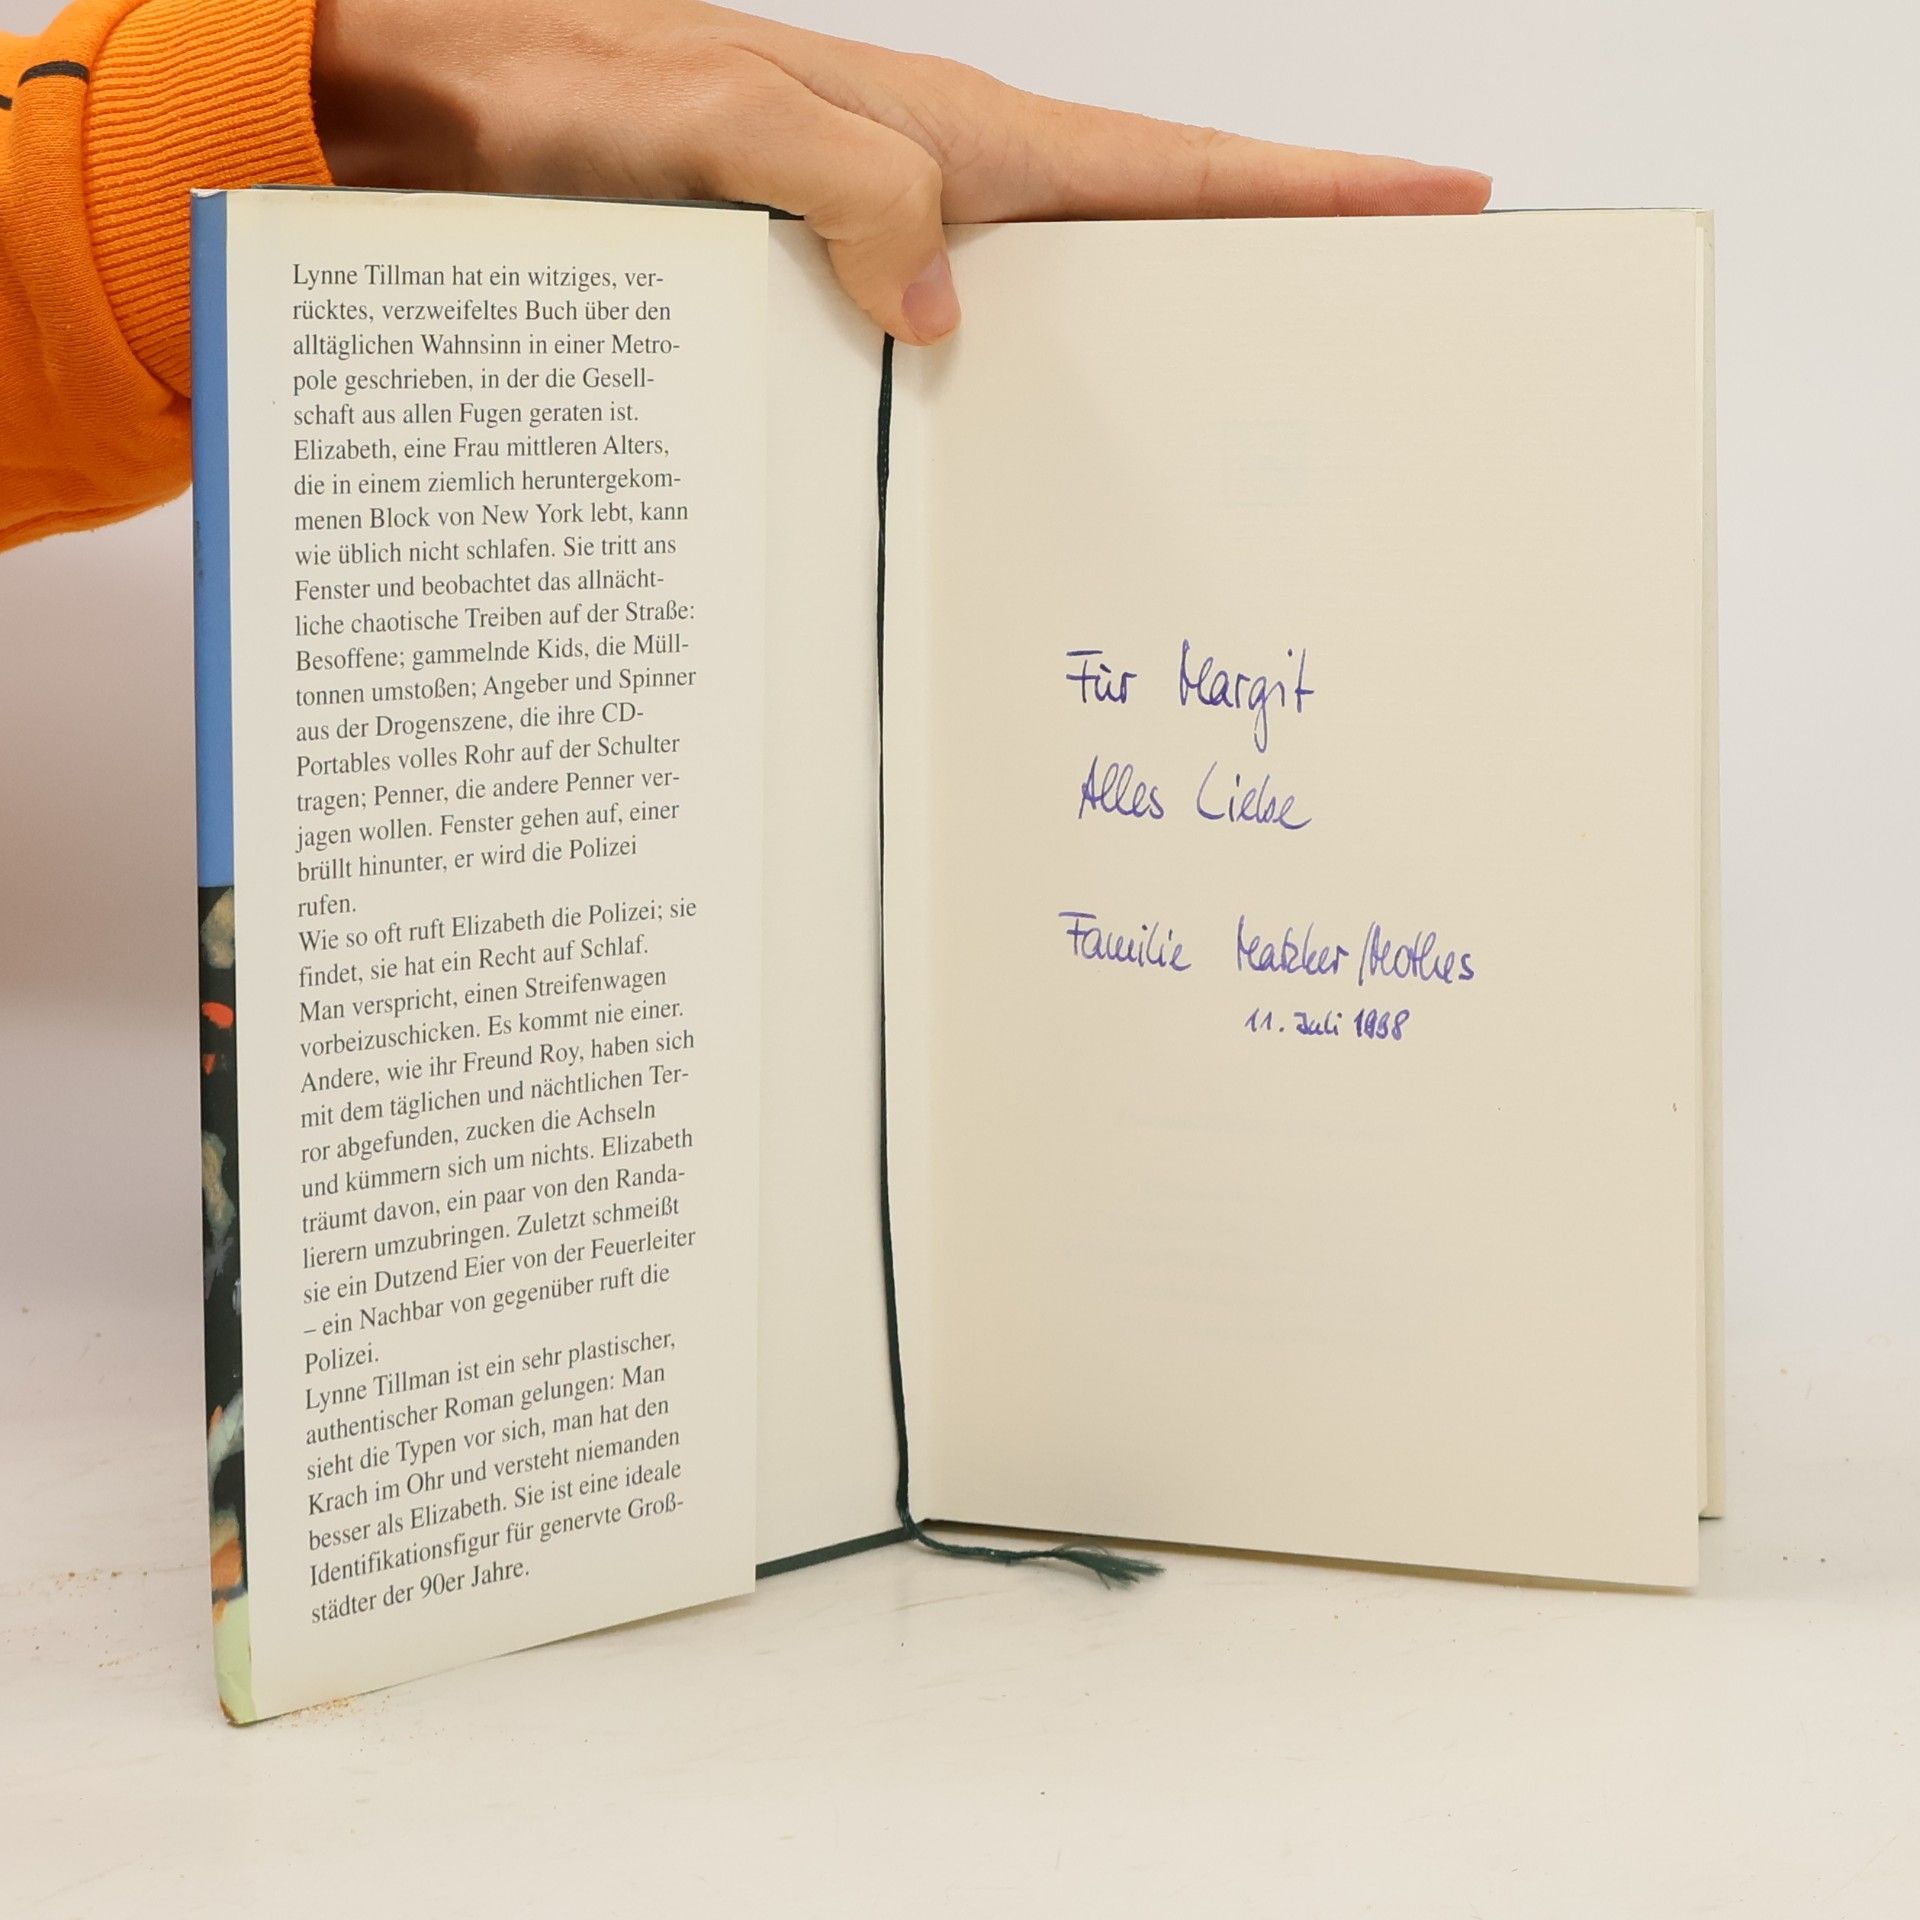 Lynne Tillman hat ein witziges, ver-
rücktes, verzweifeltes Buch über den
alltäglichen Wahnsinn in einer Metro-
pole geschrieben, in der die Gesell-
schaft aus allen Fugen geraten ist.
Elizabeth, eine Frau mittleren Alters,
die in einem ziemlich heruntergekom-
menen Block von New York lebt, kann
wie üblich nicht schlafen. Sie tritt ans
Fenster und beobachtet das allnächt-
liche chaotische Treiben auf der Straße:
Besoffene; gammelnde Kids, die Müll-
tonnen umstoßen; Angeber und Spinner
aus der Drogenszene, die ihre CD-
Portables volles Rohr auf der Schulter
tragen; Penner, die andere Penner ver-
jagen wollen. Fenster gehen auf, einer
brüllt hinunter, er wird die Polizei
rufen.
Wie so oft ruft Elizabeth die Polizei; sie
findet, sie hat ein Recht auf Schlaf.
Man verspricht, einen Streifenwagen
vorbeizuschicken. Es kommt nie einer.
Andere, wie ihr Freund Roy, haben sich
mit dem täglichen und nächtlichen Ter-
ror abgefunden, zucken die Achseln
und kümmern sich um nichts. Elizabeth
träumt davon, ein paar von den Randa-
lierern umzubringen. Zuletzt schmeißt
sie ein Dutzend Eier von der Feuerleiter
– ein Nachbar von gegenüber ruft die
Polizei.
Lynne Tillman ist ein sehr plastischer,
authentischer Roman gelungen: Man
sieht die Typen vor sich, man hat den
Krach im Ohr und versteht niemanden
besser als Elizabeth. Sie ist eine ideale
Identifikationsfigur für genervte Groß-
städter der 90er Jahre.
Für Margit
Alles Liebe
Familie /Mothes
11. Juli 1998